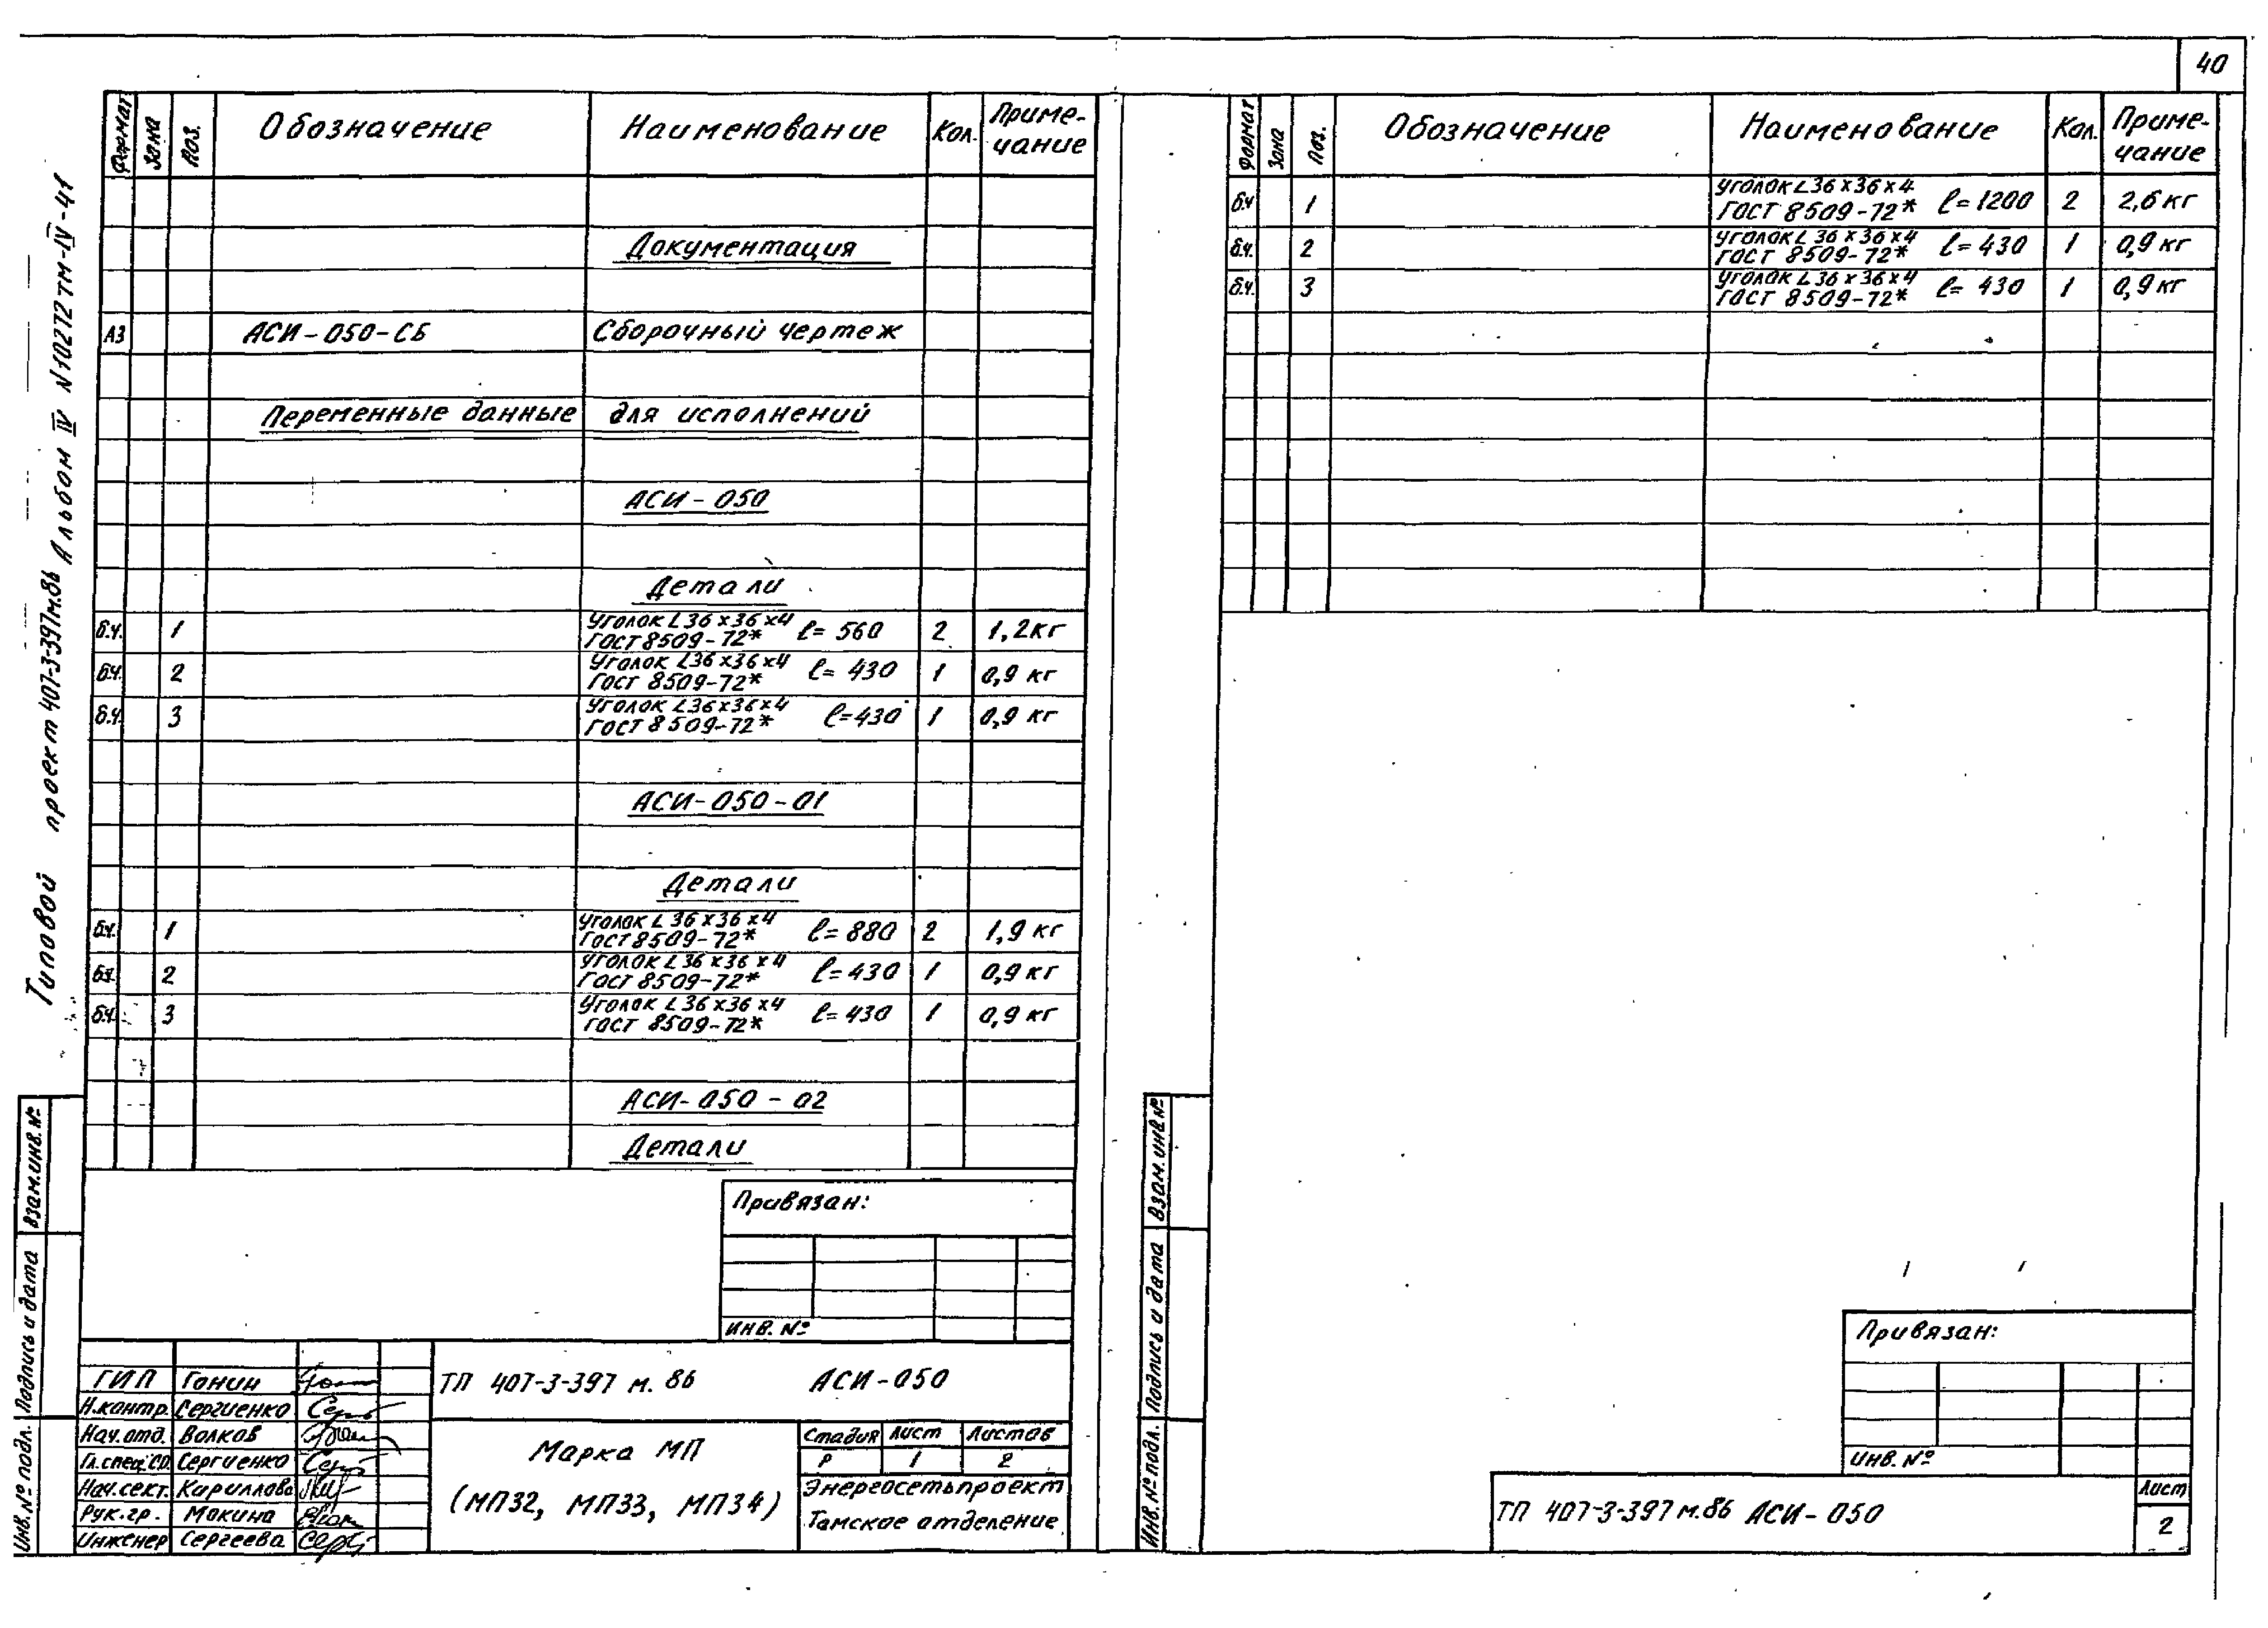 40
Типовой проект 407-3-397м.86 Альбом IV N10272тм-IV-41
Формат Зона Поз. Обозначение Наименование Кол. Приме-
чание
Документация
А3 АСИ-050-СБ Сборочный чертеж
Переменные данные для исполнений
АСИ-050
Детали
б.ч. 1 Уголок L36х36х4
ГОСТ 8509-72* ℓ=560 2 1,2кг
б.ч. 2 Уголок L36х36х4
ГОСТ 8509-72* ℓ=430 1 0,9 кг
б.ч. 3 Уголок L36х36х4
ГОСТ 8509-72* ℓ=430 1 0,9 кг
АСИ-050-01
Детали
б.ч. 1 Уголок L36х36х4
ГОСТ 8509-72* ℓ=880 2 1,9 кг
б.ч. 2 Уголок L36х36х4
ГОСТ 8509-72* ℓ=430 1 0,9 кг
б.ч. 3 Уголок L36х36х4
ГОСТ 8509-72* ℓ=430 1 0,9 кг
АСИ-050-02
Детали
Привязан:
Инв. №
Взам.инв.№
Подпись и дата
Инв.№ подл.
ГИП Гонин
Н.контр. Сергиенко
Нач.отд. Волков
Гл.спец.СО Сергиенко
Нач.сект. Кириллова
Рук.гр. Мокина
Инженер Сергеева
ТП 407-3-397 м. 86 АСИ-050
Марка МП
(МП32, МП33, МП34)
Стадия Лист Листов
Р 1 2
Энергосетьпроект
Томское отделение
Формат Зона Поз. Обозначение Наименование Кол. Приме-
чание
б.ч 1 Уголок L36х36х4
ГОСТ 8509-72* ℓ=1200 2 2,6 кг
б.ч. 2 Уголок L36х36х4
ГОСТ 8509-72* ℓ=430 1 0,9 кг
б.ч. 3 Уголок L36х36х4
ГОСТ 8509-72* ℓ=430 1 0,9 кг
Взам.инв№
Подпись и дата
Инв.№ подл.
Привязан:
Инв. №
ТП 407-3-397 м.86 АСИ-050
Лист
2